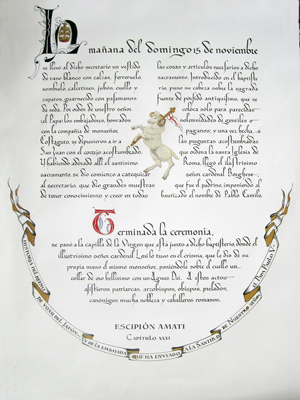 La
mañana del domingo 15 de noviembre
se llevó al dicho secretario un vestido
de raso blanco con calzas, ferreruelo,
sombrero, calcetines, jubón, cuello y
zapatos, guarnecido con pasamanos
de seda. Por orden de nuestro señor
el Papa los embajadores, honrados
con la compañía de monseñor
Costaguto, se dispusieron a ir a
San Juan con el cortejo acostumbrado.
Y habiendo llegado allí el santísimo
sacramento, se dio comienzo a catequizar
al secretario, que dio grandes muestras
de tener conocimiento y creer en todas
las cosas y artículos necesarios a dicho
sacramento. Introducido en el baptiste-
rio, puso su cabeza sobre la sagrada
fuente de pórfido antiquísimo, que se
coloca sólo para
solemnidades de gentiles o
paganos; y una vez hecha
las preguntas acostumbradas
que ordena la santa Iglesia de
Roma, llegó el ilustrísimo
señor cardenal Borghese,
que fue el padrino, imponiendo al
bautizado el nombre de Pablo Camilo.
Terminada la ceremonia,
se pasó a la capilla de la Virgen que está junto a dicho baptisterio, donde el
ilustrísimo señor cardenal Leni lo tuvo en el crisma, que le dio de su
propia mano el mismo monseñor, poniéndole sobre el cuello un
collar de oro bellísimo con un Agnus Dei. A estos actos
asistieron patriarcas, arzobispos, obispos, prelados,
canónigos mucha nobleza y caballeros romanos.
ESCIPIÓN AMATI
CAPÍTULO XXXI
HISTORIA DEL REINO
DE VOXU DEL JAPÓN
Y DE LA EMBAJADA
QUE HA ENVIADO
A LA SANTIDAD
DE NUESTRO SEÑOR
EL PAPA PAULO V